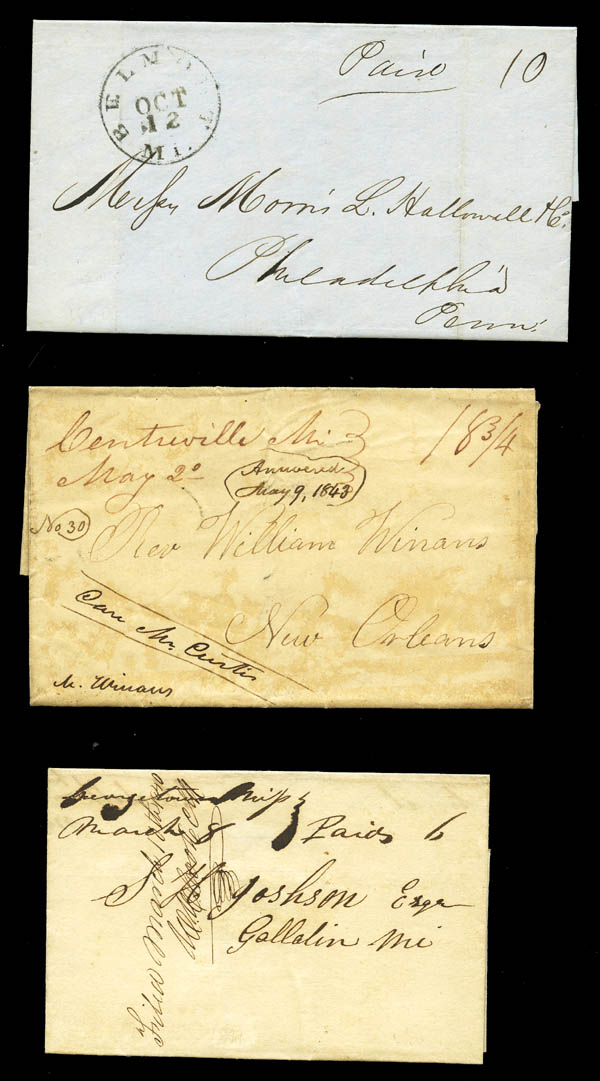 BELMONT
OCT
12
Mi.
Paid 10
Messrs Morris L. Hallowell & Co.
Philadelphia
Penn.
Centreville Mi
May 2d
18 3/4
Answered
May 9, 1843
No 30
Rev William Winans
New Orleans
Care Mr Curtis
M. Winans
Georgetown Miss
March 8 Paid 6
Joshson Esqr
Gallatin Mi
Filed March